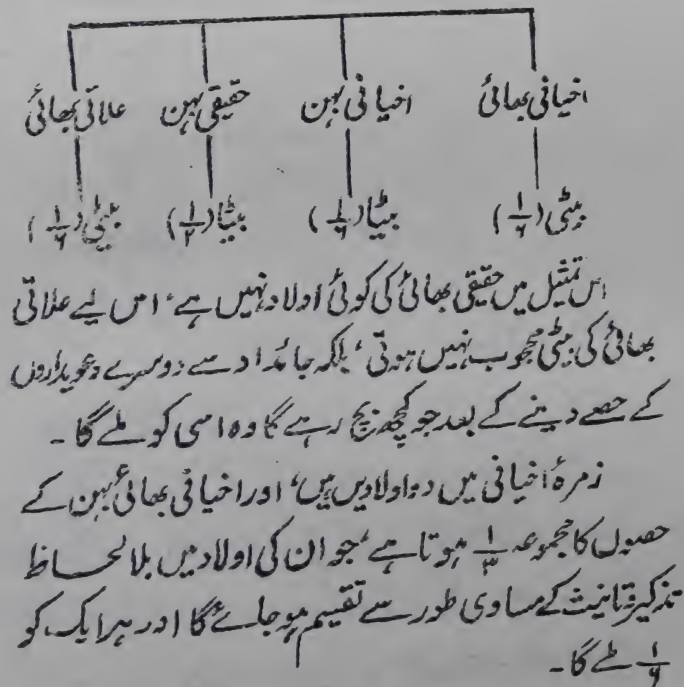 اخیافی بھائی اخیافی بہن حقیقی بہن علاتی بھائی
بیٹی (۱/۶) بیٹا (۱/۶) بیٹا (۱/۲) بیٹی (۱/۶)
اس تمثیل میں حقیقی بھائی کی کوئی اولاد نہیں ہے، اس لیے علاتی
بھائی کی بیٹی محجوب نہیں ہوتی، بلکہ جائداد سے دوسرے دعویداروں
کے حصے دینے کے بعد جو کچھ بچ رہے گا وہ اسی کو ملے گا ۔
زمرۂ اخیافی میں دو اولادیں ہیں، اور اخیافی بھائی بہن کے
حصوں کا مجموعہ ۱/۳ ہوتا ہے، جو ان کی اولاد میں بلا لحاظ
تذکیر و تانیث کے مساوی طور سے تقسیم ہو جائے گا اور ہر ایک کو
۱/۶ ملے گا ۔